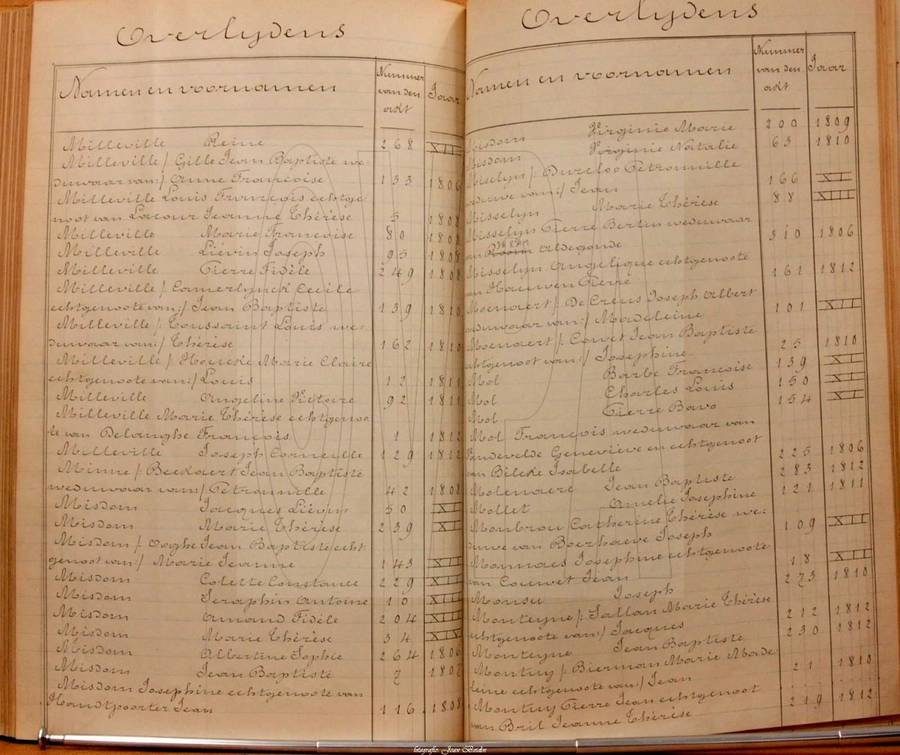 Overlydens
Namen en voornamen Nummer van den adt Jaar
Milleville Reine 268 XII
Milleville / Gille Jean Baptiste we-
duwaar van:/ Anne Francoise 133 1806
Milleville Louis François echtge-
noot van Lacour Jeanne Thérèse 5 1808
Milleville Marie Francoise 80 1808
Milleville Liévin Joseph 95 1808
Milleville Pierre Fidèle 249 1808
Milleville / Camerlynck Cecile
echtgenoote van:/ Jean Baptiste 139 1810
Milleville / Toussaint Louis we-
duwaar van:/ Thérèse 162 1810
Milleville / Marie Claire
echtgenoote van:/ Louis 12 1811
Milleville Angeline Victoire 92 1811
Milleville Marie Thérèse echtgenoo-
te van Delanghe François 1 1812
Milleville Joseph Corneille 129 1812
Minne / Beekaert Jean Baptiste
weduwaar van/ Petronille 42 1808
Misdom Jacques Liévin 50 XII
Misdom Marie Thérèse 239 XII
Misdom / Ooghe Jean Baptiste echt
genoot van:/ Marie Jeanne 143 XIII
Misdom Colette Constance 229 XIII
Misdom Seraphin Antoine 10 XIII
Misdom Amand Fidèle 204 XIII
Misdom Marie Thérèse 34 XIII
Misdom Albertine Sophie 264 1806
Misdom Jean Baptiste 7 1807
Misdom Josephine echtgenoote van
Handtpoorter Jean 116 1808
Overlydens
Namen en voornamen Nummer van den adt Jaar
Misdom Virginie Marie 200 1809
Misdom Virginie Natalie 63 1810
Misselyn / Duzeloo Petronille
weduwe van:/ Jean 166 XII
Misselyn Marie Thérèse 88 XIII
Misselyn Pierre Bertin weduwaar
van Aldegonde 310 1806
Misselyn Angelique echtgenoote
van Hauwen Pierre 161 1812
Moenaert / De Creus Joseph Albert
weduwaar van:/ Madeleine 101 XII
Moenaert / Jean Baptiste
echtgenoot van:/ Josephine 25 1810
Mol Barbe Francoise 139 XI
Mol Charles Louis 150 XI
Mol Pierre Bavo 154 XI
Mol François weduwaar van
Vandevelde Geneviève en echtgenoot
van Bilcke Isabelle 225 1806
Molenaere Jean Baptiste 283 1812
Mollet Amelie Josephine 121 1811
Monbrou Catherine Thérèse we-
duwe van Boerhaeve Joseph 109 XII
Monnaes Josephine echtgenoote
van Couvet Jean 18 XIII
Monsu Joseph 273 1810
Monteyne / Marie Thérèse
echtgenoote van:/ Jacques 212 1812
Monteyne Jean Baptiste 230 1812
Montuy / Bierman Marie Made
leine echtgenoote van:/ Jean 21 1810
Montuy Pierre Jean echtgenoot
van Bril Jeanne Thérèse 219 1812